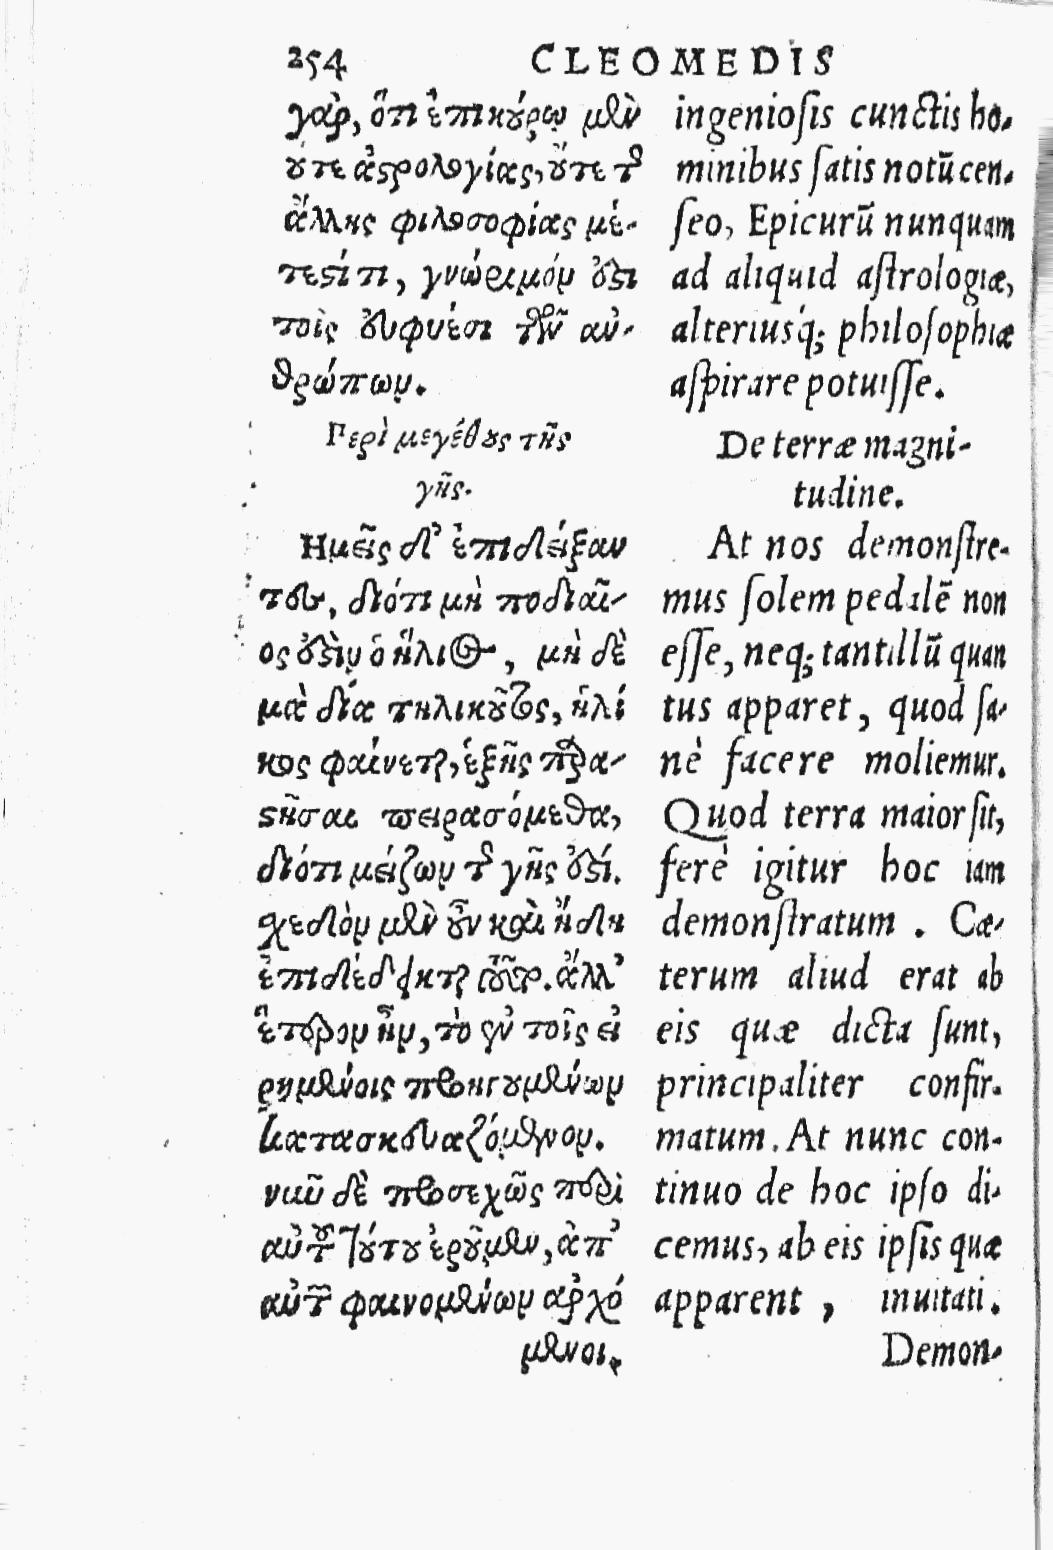 254 CLEOMEDIS
γὰρ, ὅτι ἐπικούρῳ μὲν
οὔτε ἀστρολογίας, οὔτε τῆς
ἄλλης φιλοσοφίας μέ-
τεστί τι, γνώριμόν ἐστι
τοῖς εὐφυέσι τῶν ἀν-
θρώπων.
Περὶ μεγέθους τῆς
γῆς.
Ἡμεῖς δ' ἐπιδείξαν
τες, διότι μὴ ποδιαῖ-
ος ἐστὶν ὁ ἥλιος, μὴ δὲ
μὰ δία τηλικοῦτος, ἡλί
κος φαίνεται, ἑξῆς παρα-
στῆσαι πειρασόμεθα,
διότι μείζων τῆς γῆς ἐστί.
σχεδὸν μὲν οὖν καὶ ἤδη
ἐπιδέδεικται τοῦτο. ἀλλ'
ἕτερον ἦν, τὸ ἐν τοῖς εἰ
ρημένοις προηγουμένων
κατασκευαζόμενον.
νυνὶ δὲ προσεχῶς περὶ
αὐτοῦ τούτου ἐροῦμεν, ἀπ'
αὐτῶν φαινομένων ἀρχό
μενοι,
ingeniosis cunctis ho-
minibus satis notū cen-
seo, Epicurū nunquam
ad aliquid astrologiæ,
alteriusq; philosophiæ
aspirare potuisse.
De terræ magni-
tudine.
At nos demonstre-
mus solem pedalē non
esse, neq; tantillū quan
tus apparet, quod sa-
nè facere moliemur.
Quod terra maior sit,
ferè igitur hoc iam
demonstratum. Cæ-
terum aliud erat ab
eis quæ dicta sunt,
principaliter confir-
matum. At nunc con-
tinuo de hoc ipso di-
cemus, ab eis ipsis quæ
apparent, inuitati.
Demon-